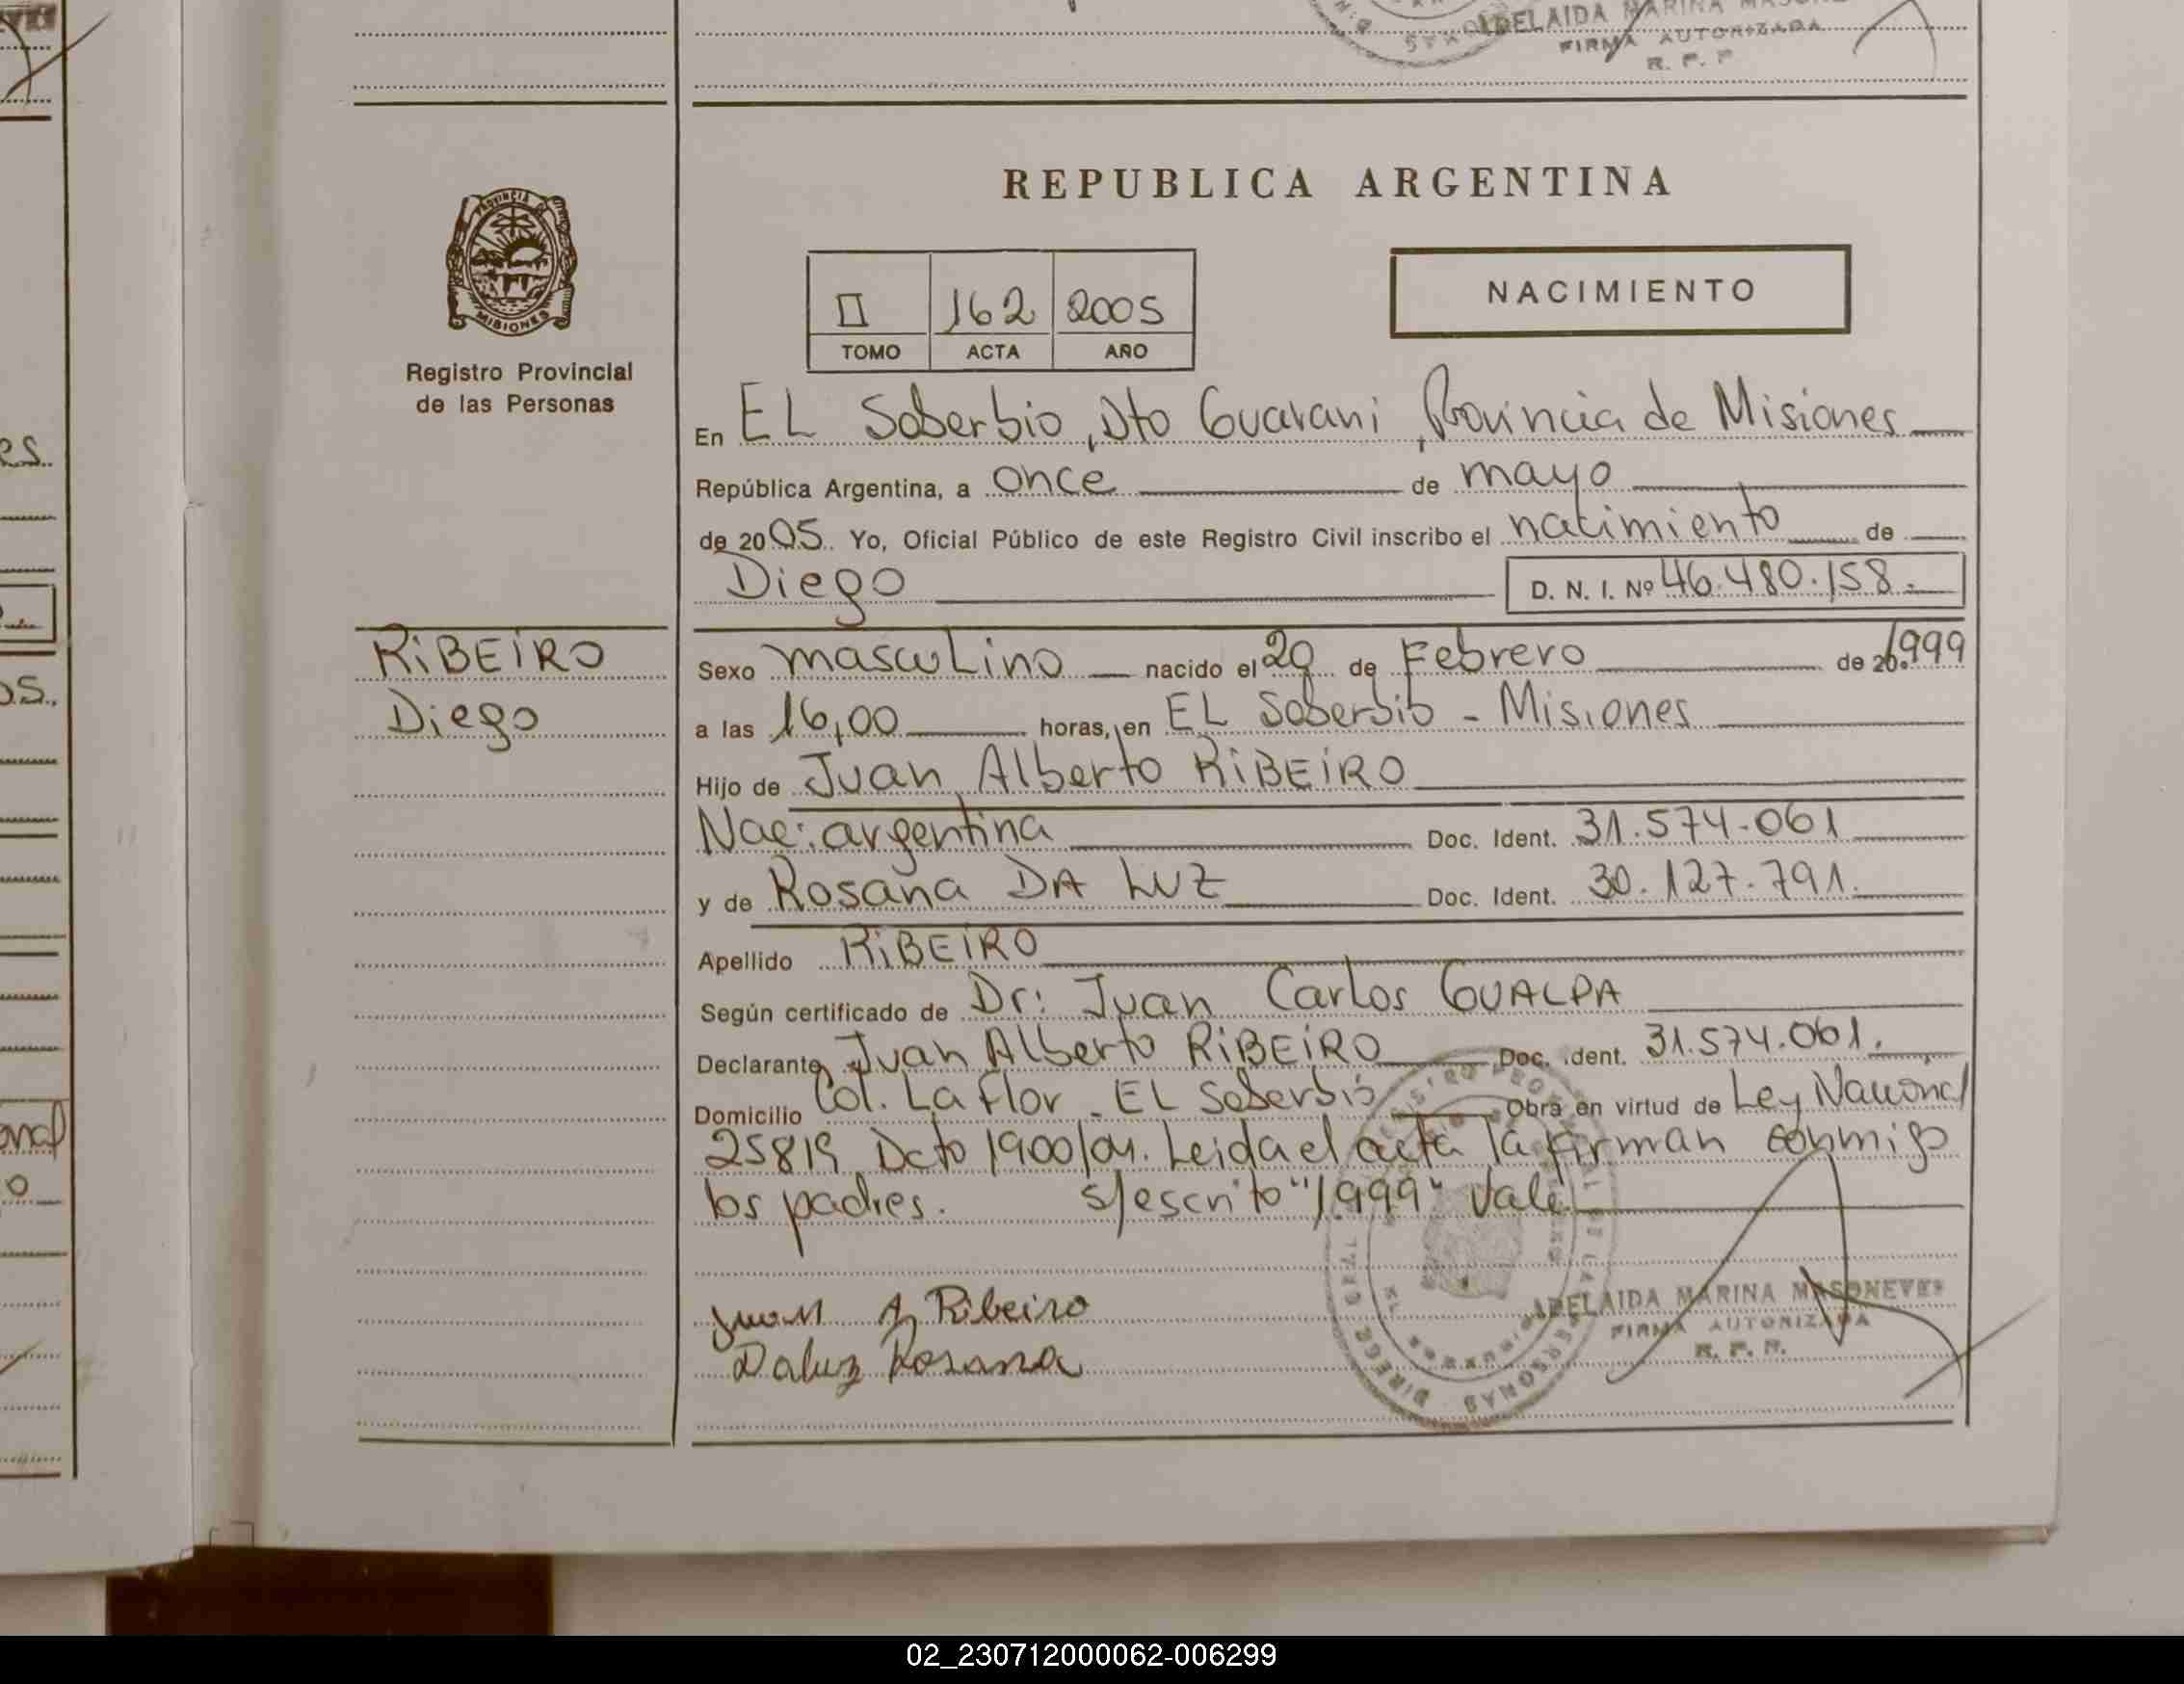 ADELAIDA MARINA
FIRMA AUTORIZADA
R. P. P
REPUBLICA ARGENTINA
PROVINCIA DE
MISIONES
Registro Provincial
de las Personas
II 162 2005
TOMO ACTA AÑO
NACIMIENTO
En EL Soberbio, Dto Guarani, Provincia de Misiones
República Argentina, a once de mayo
de 2005. Yo, Oficial Público de este Registro Civil inscribo el nacimiento de
Diego D. N. I. Nº 46.480.158.
RIBEIRO
Diego
Sexo masculino nacido el 20 de Febrero de 1999
a las 16,00 horas, en EL Soberbio - Misiones
Hijo de Juan Alberto RIBEIRO
Nac: argentina Doc. Ident. 31.574.061
y de Rosana DA LUZ Doc. Ident. 30.127.791.
Apellido RIBEIRO
Según certificado de Dr: Juan Carlos GUALPA
Declarante Juan Alberto RIBEIRO Doc. Ident. 31.574.061.
Domicilio Col. La Flor - EL Soberbio Obra en virtud de Ley Nacional
25819 Dcto 1900/04. Leida el acta la firman conmigo
los padres. s/escrito "1999" Vale
Juan A Ribeiro
Daluz Rosana
ADELAIDA MARINA MASONEVES
FIRMA AUTORIZADA
R. P. P.
02_230712000062-006299